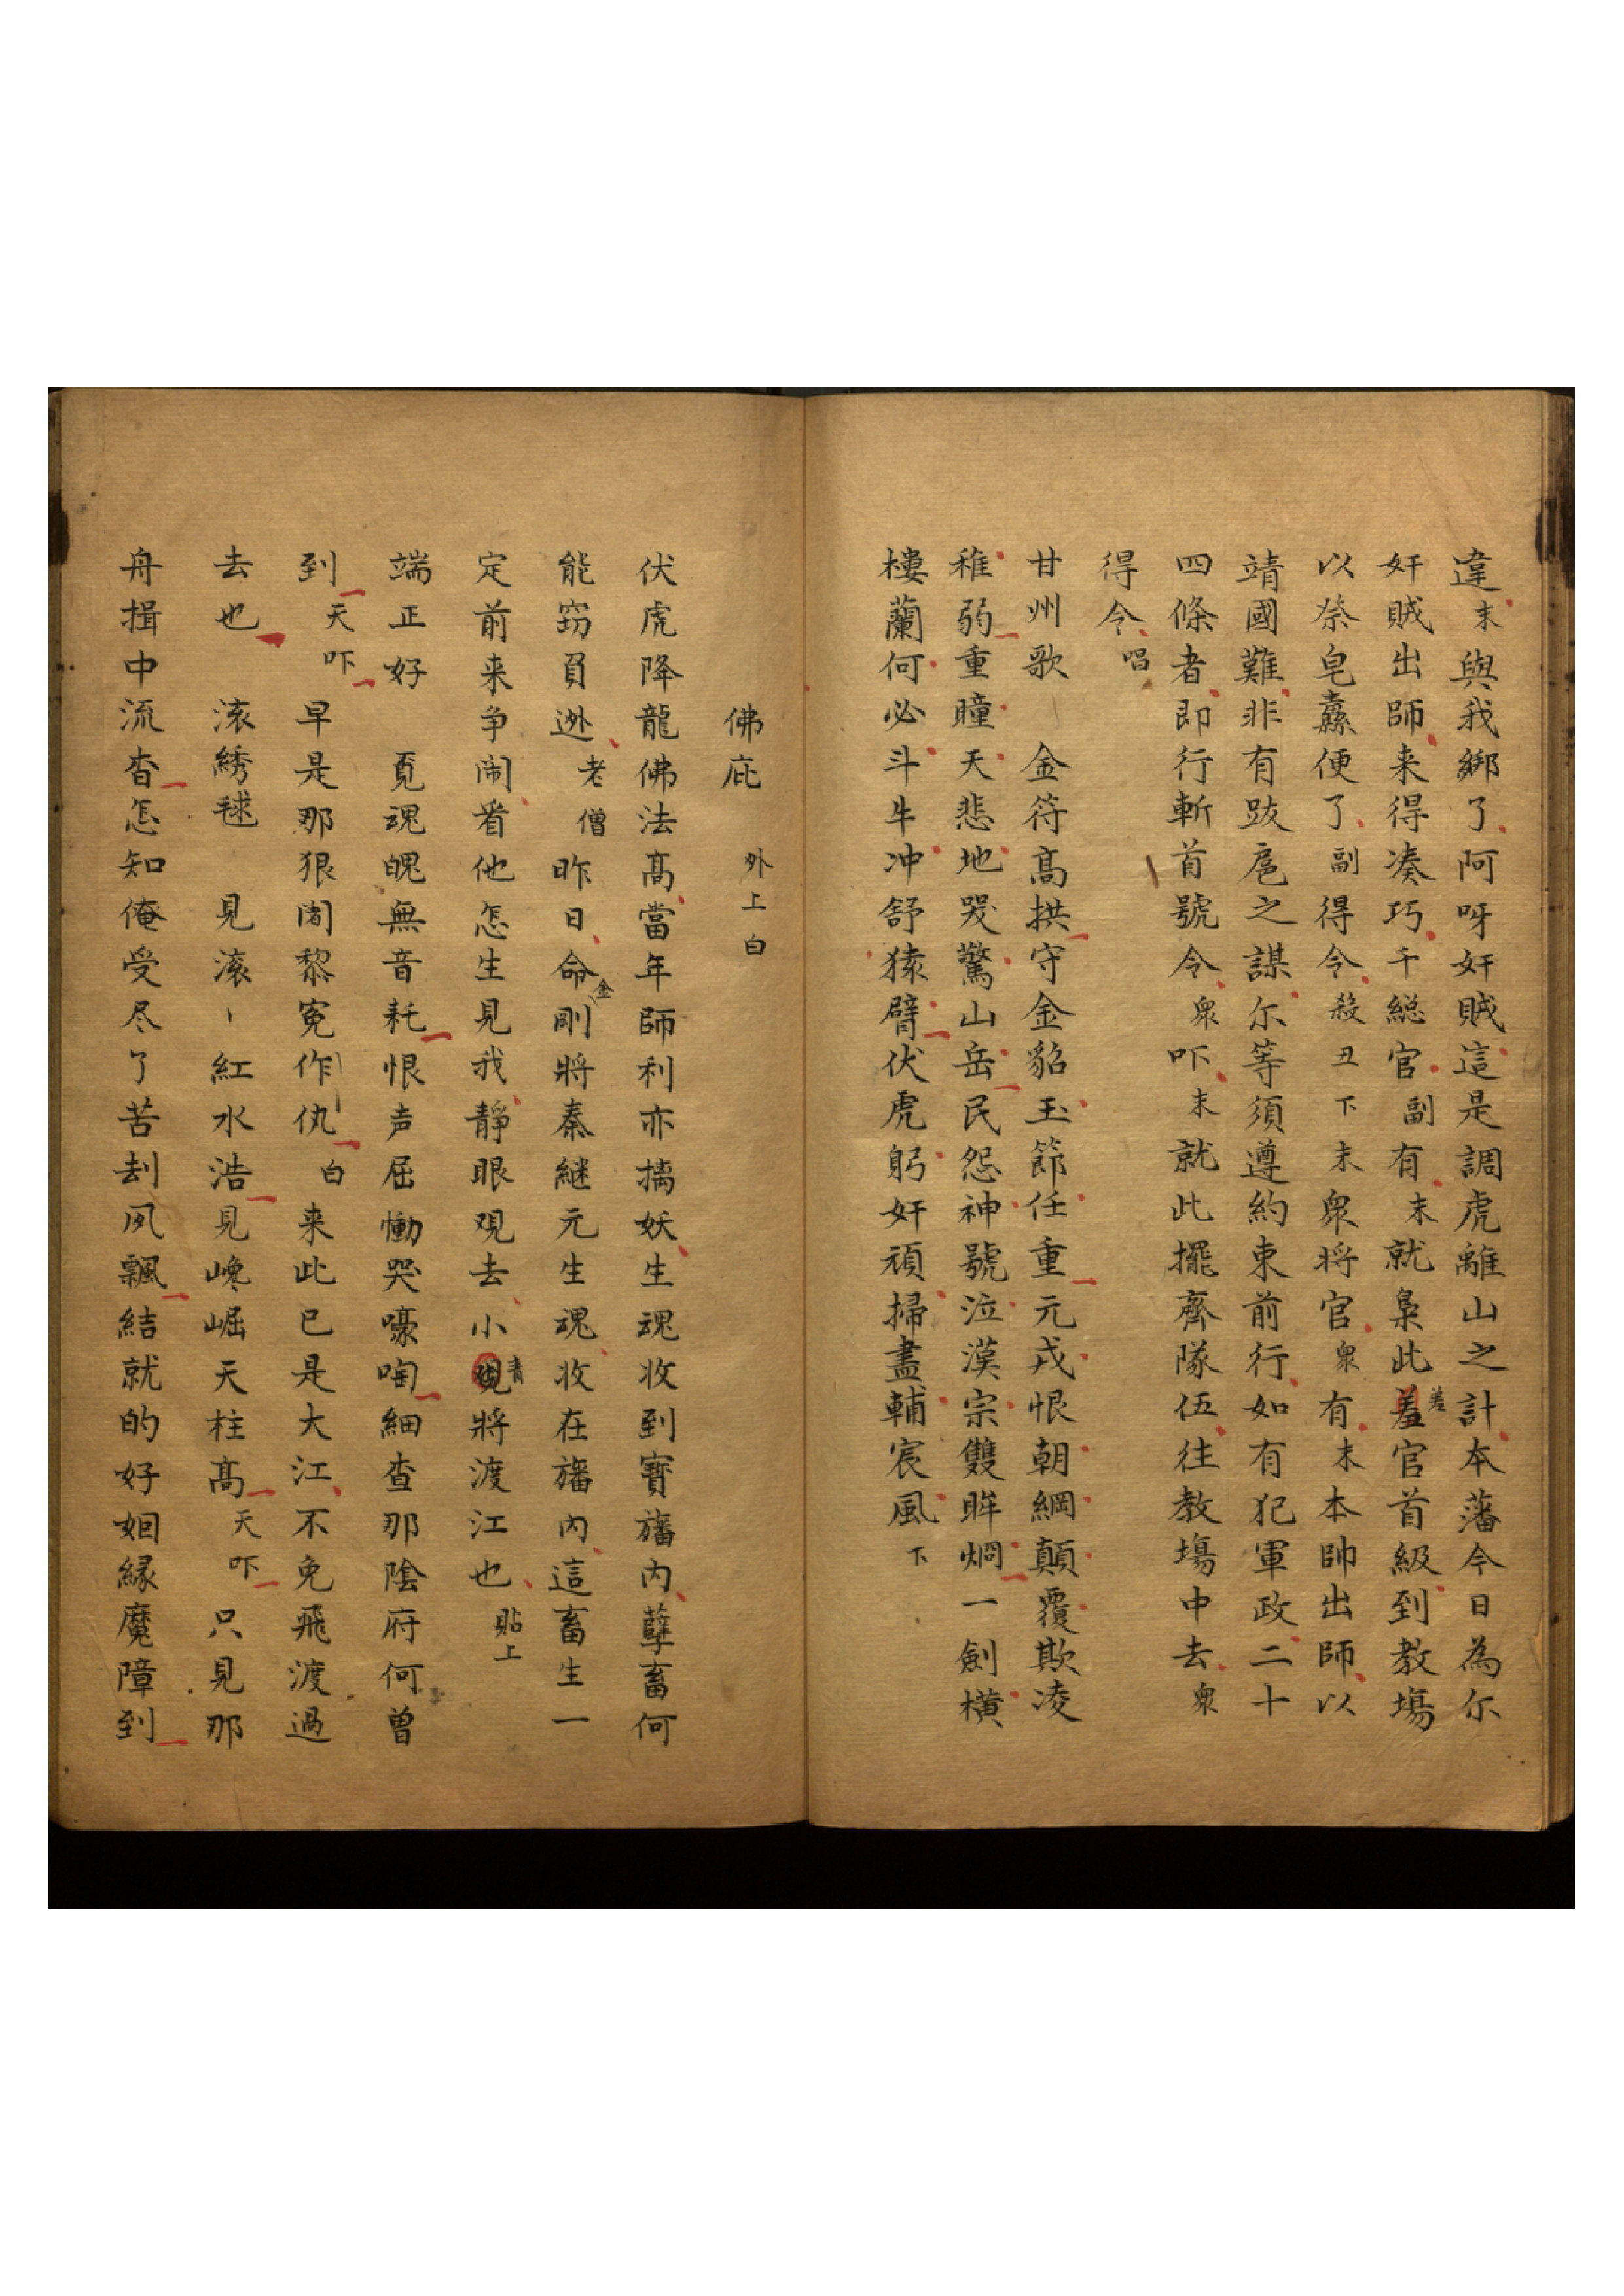 違末與我綁了阿呀奸賊這是調虎離山之計本藩今日為尔
奸賊出師来得凑巧千総官副有末就梟此羞差官首級到教塲
以祭皂纛便了副得令殺丑下末衆将官衆有末本帥出師以
靖國難非有跋扈之謀尔等須遵約束前行如有犯軍政二十
四條者即行斬首號令衆吓末就此擺齊隊伍往教塲中去衆
得令唱
甘州歌 金符髙拱守金貂玉節任重元戎恨朝綱顛覆欺凌
稚弱重瞳天悲地哭驚山岳民怨神號泣漢宗雙眸烱一劍橫
樓蘭何必斗牛冲舒猿臂伏虎躬奸頑掃盡輔宸風下
佛庇 外上白
伏虎降龍佛法髙當年師利亦擒妖生魂收到寶旛内孽畜何
能窃負迯老僧昨日命金剛將秦継元生魂收在旛内這畜生一
定前来争闹看他怎生見我靜眼观去小青將渡江也貼上
端正好 覔魂魄無音耗恨声屈慟哭嚎啕細查那陰府何曾
到天吓早是那狠闍黎冤作仇白来此已是大江不免飛渡過
去也 滾綉毬 見滾丶紅水浩見巉崛天柱髙天吓只見那
舟揖中流杳怎知俺受尽了苦刦夙飄結就的好姻縁魔障到